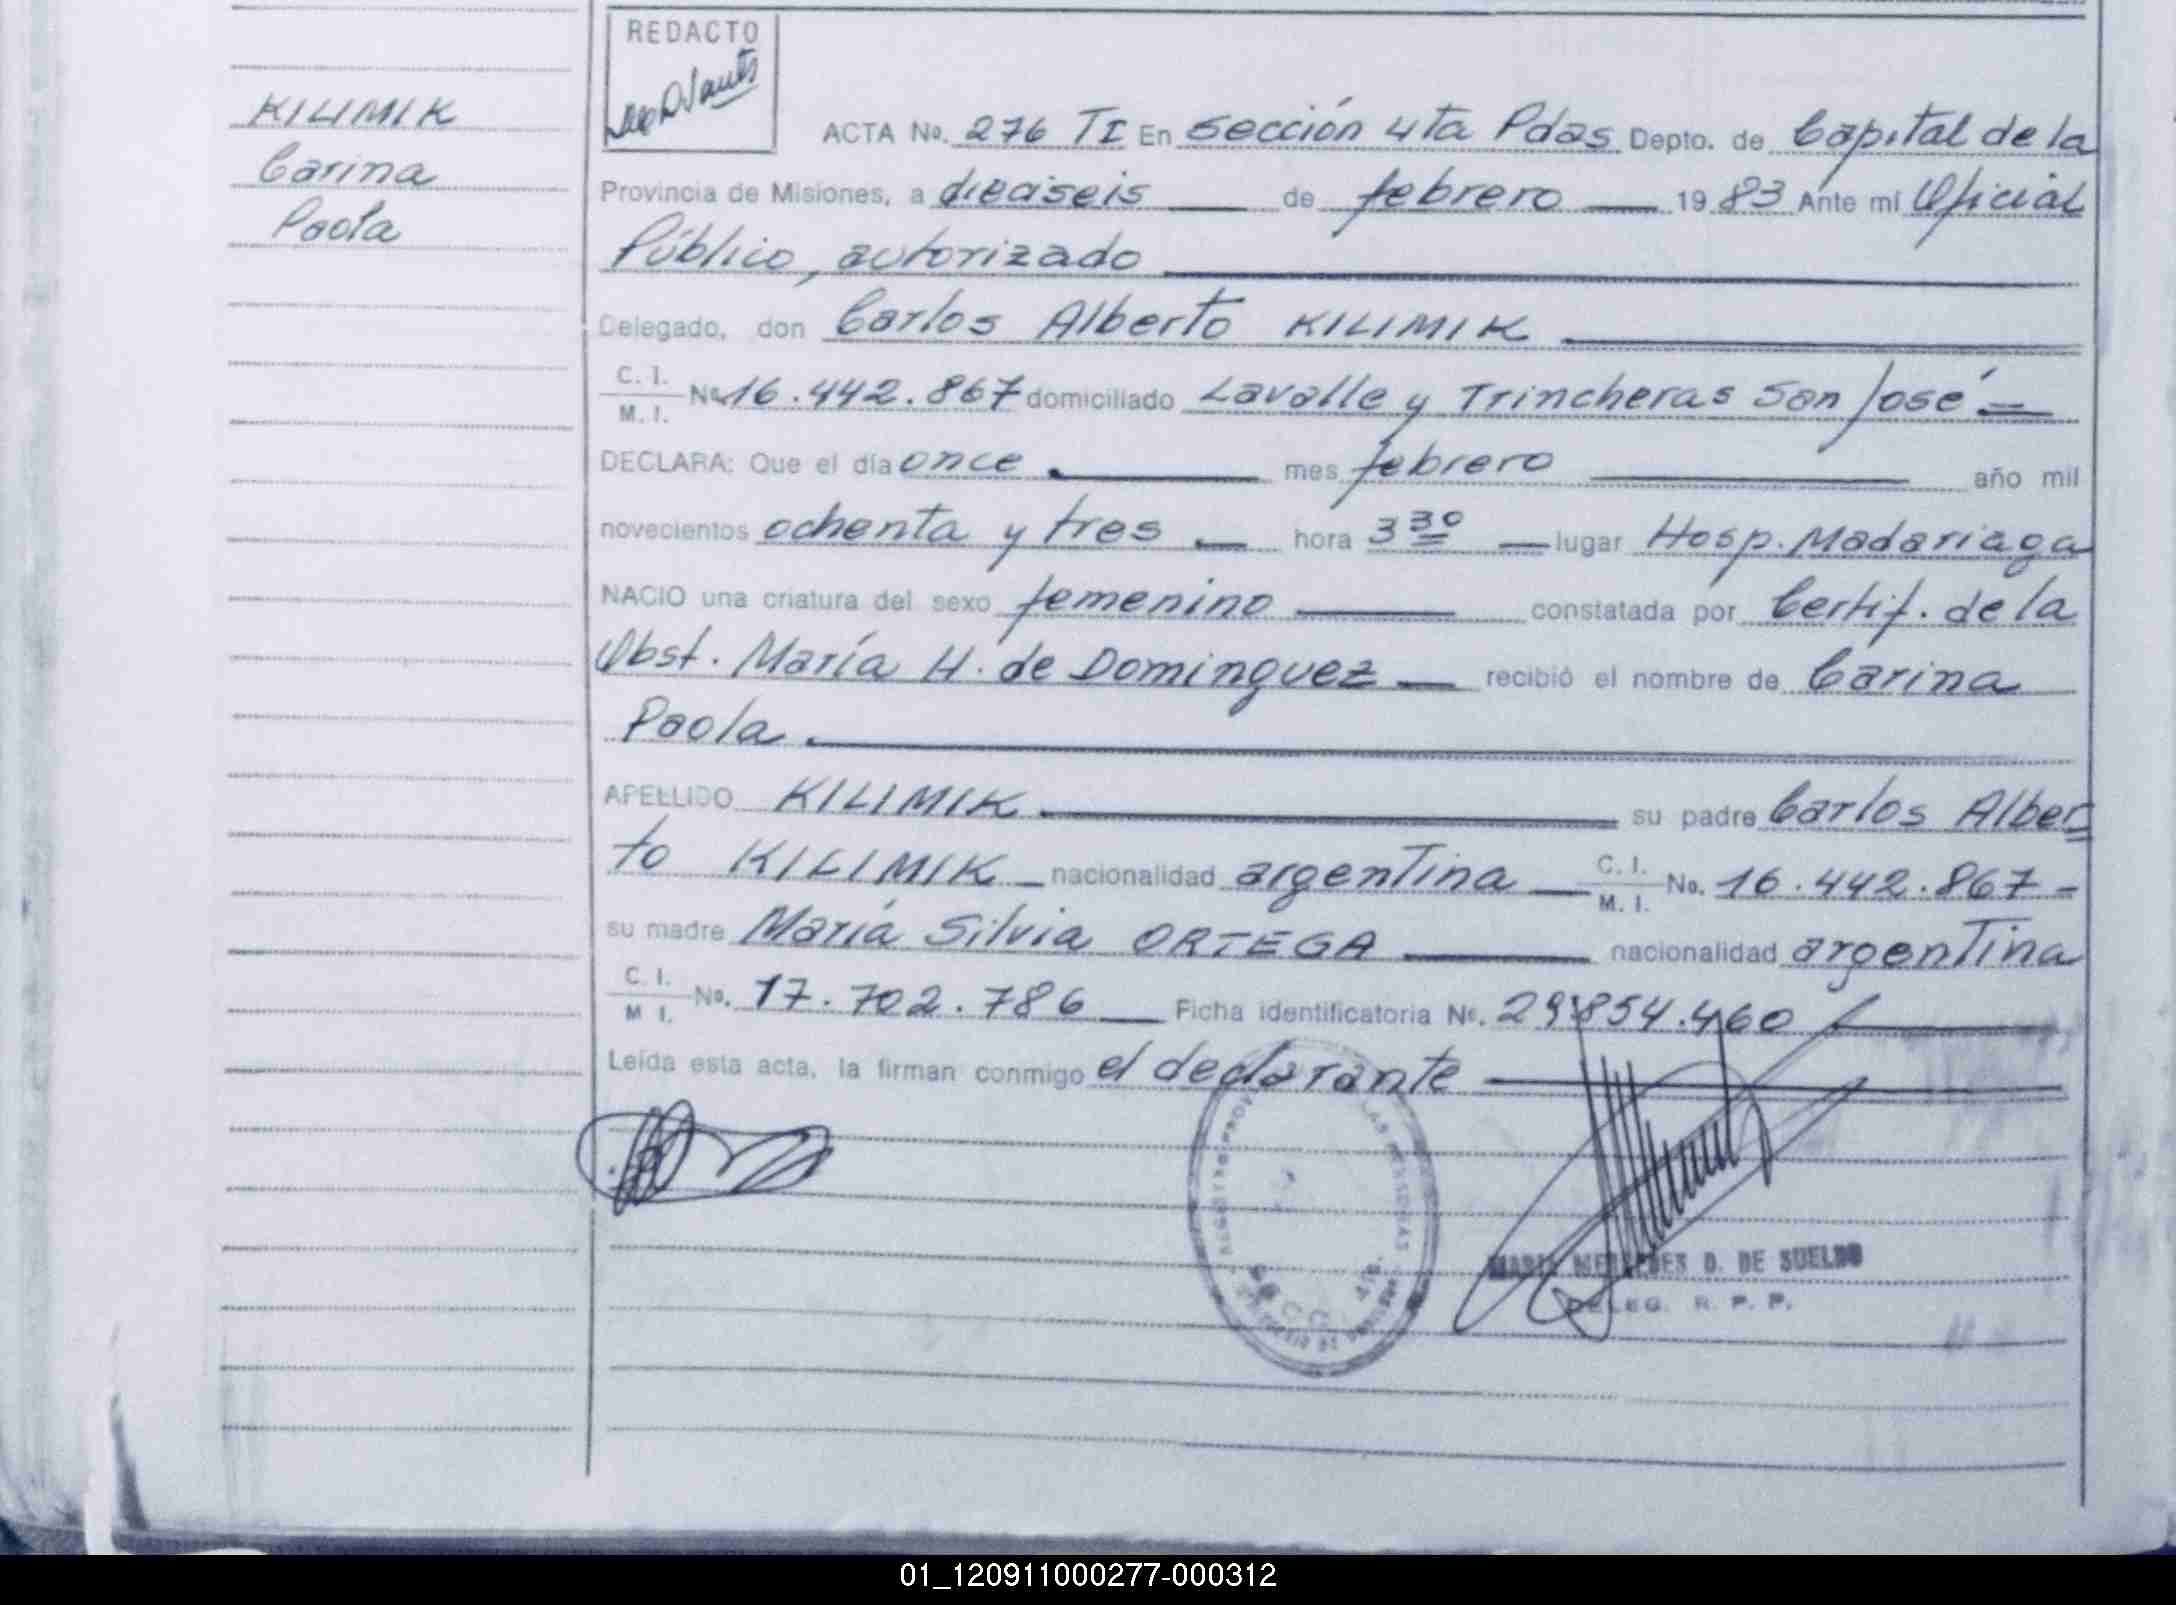 REDACTO
KILIMIK
Carina
Paola
ACTA No. 276 TI En Sección 4ta Pdas Depto. de Capital de la
Provincia de Misiones, a dieciseis de febrero 1983 Ante mi Oficial
Público, autorizado
Delegado, don Carlos Alberto KILIMIK
C. I.
M. I. No 16.442.867 domiciliado Lavalle y Trincheras San José
DECLARA: Que el día once mes febrero año mil
novecientos ochenta y tres hora 3 30 lugar Hosp. Madariaga
NACIO una criatura del sexo femenino constatada por Certif. de la
Obst. María H. de Dominguez recibió el nombre de Carina
Paola
APELLIDO KILIMIK su padre Carlos Alber
to KILIMIK nacionalidad argentina C. I. M. I. No. 16.442.867
su madre María Silvia ORTEGA nacionalidad argentina
C. I. M I. No. 17.702.786 Ficha identificatoria No. 29.854.460
Leída esta acta, la firman conmigo el declarante
MARIA MERCEDES D. DE SUELDO
DELEG. R. P. P.
01_120911000277-000312